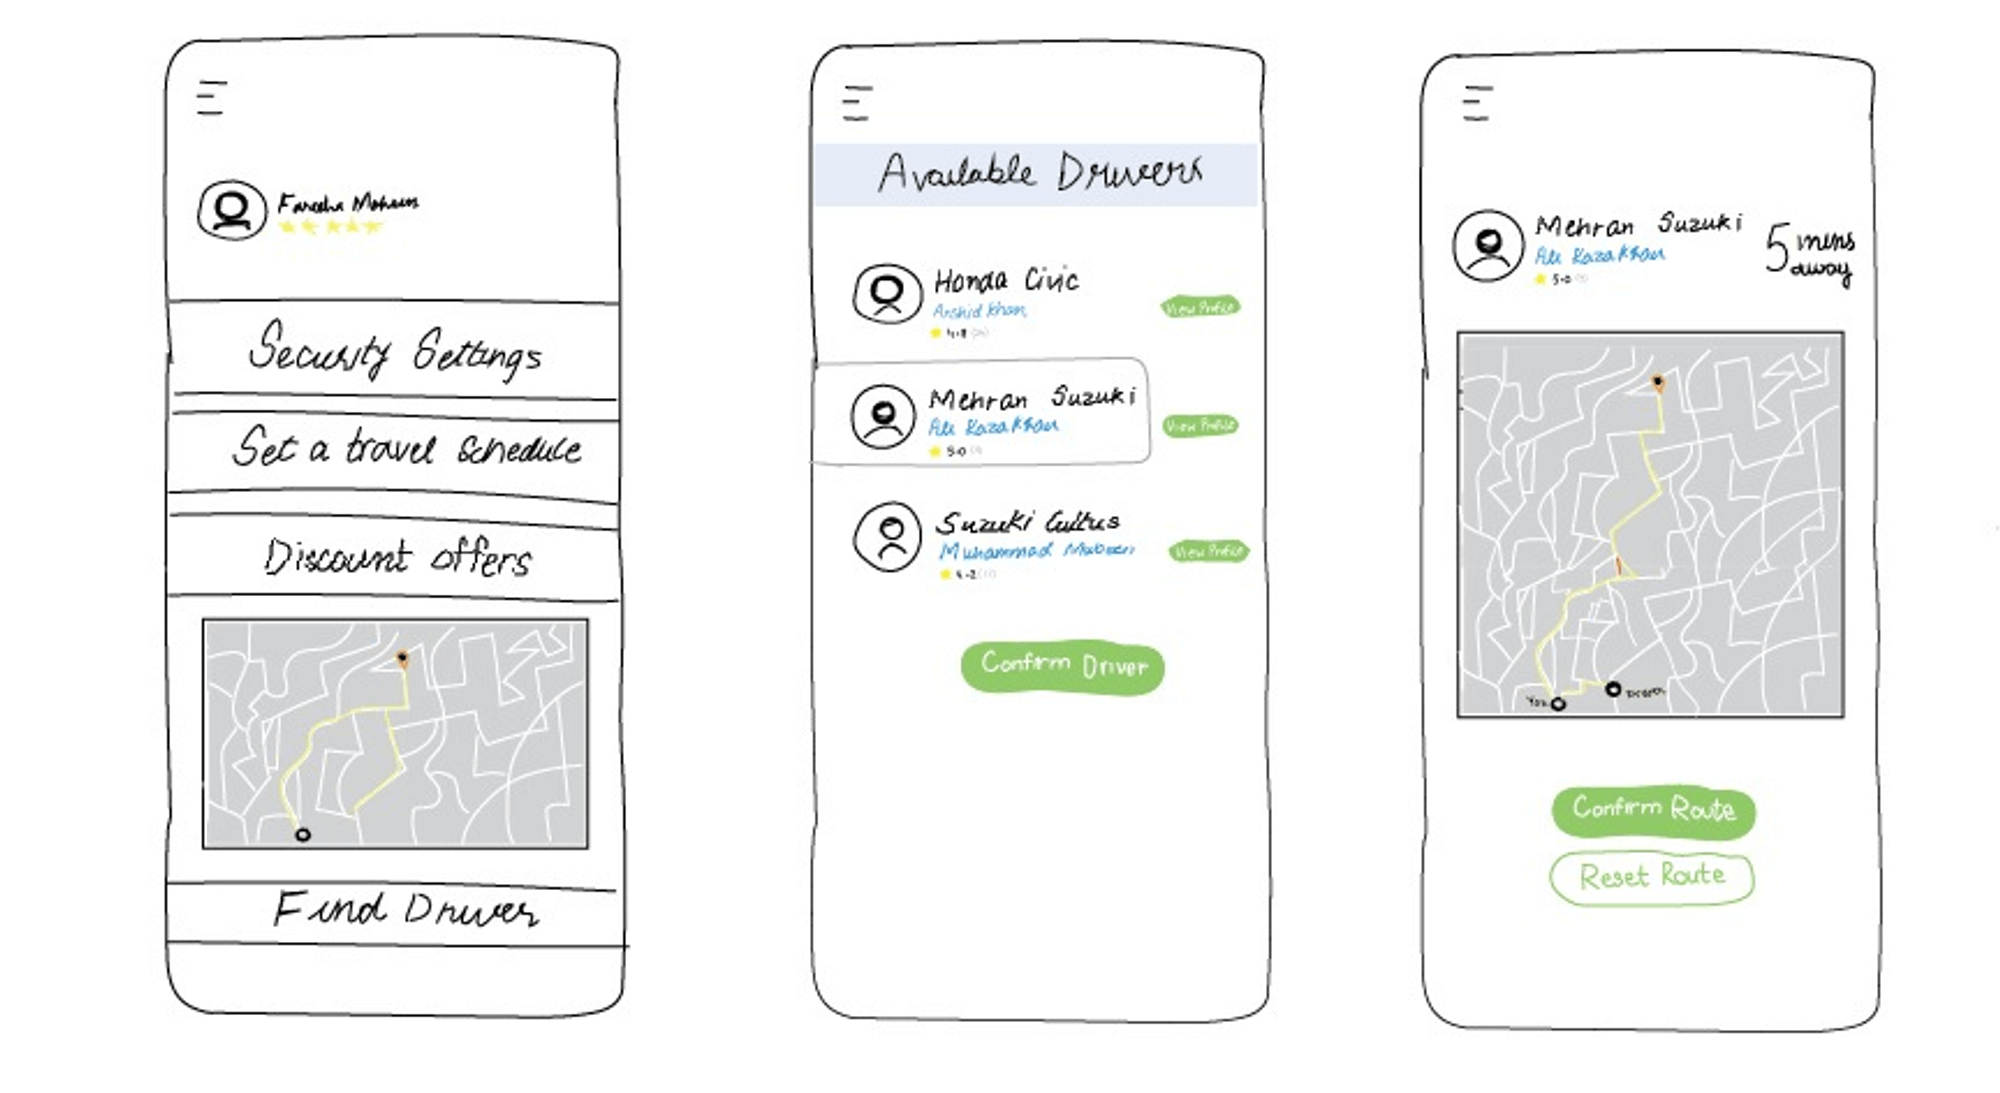 Security Settings
Set a travel schedule
Discount offers
Find Driver
Available Drivers
Honda Civic
Arshid Khan
4.8
View Profile
Mehran Suzuki
Ali Raza Khan
5.0
View Profile
Suzuki Cultus
Muhammad
4.2
View Profile
Confirm Driver
Mehran Suzuki
Ali Raza Khan
5.0
5 mins
away
You
Driver
Confirm Route
Reset Route